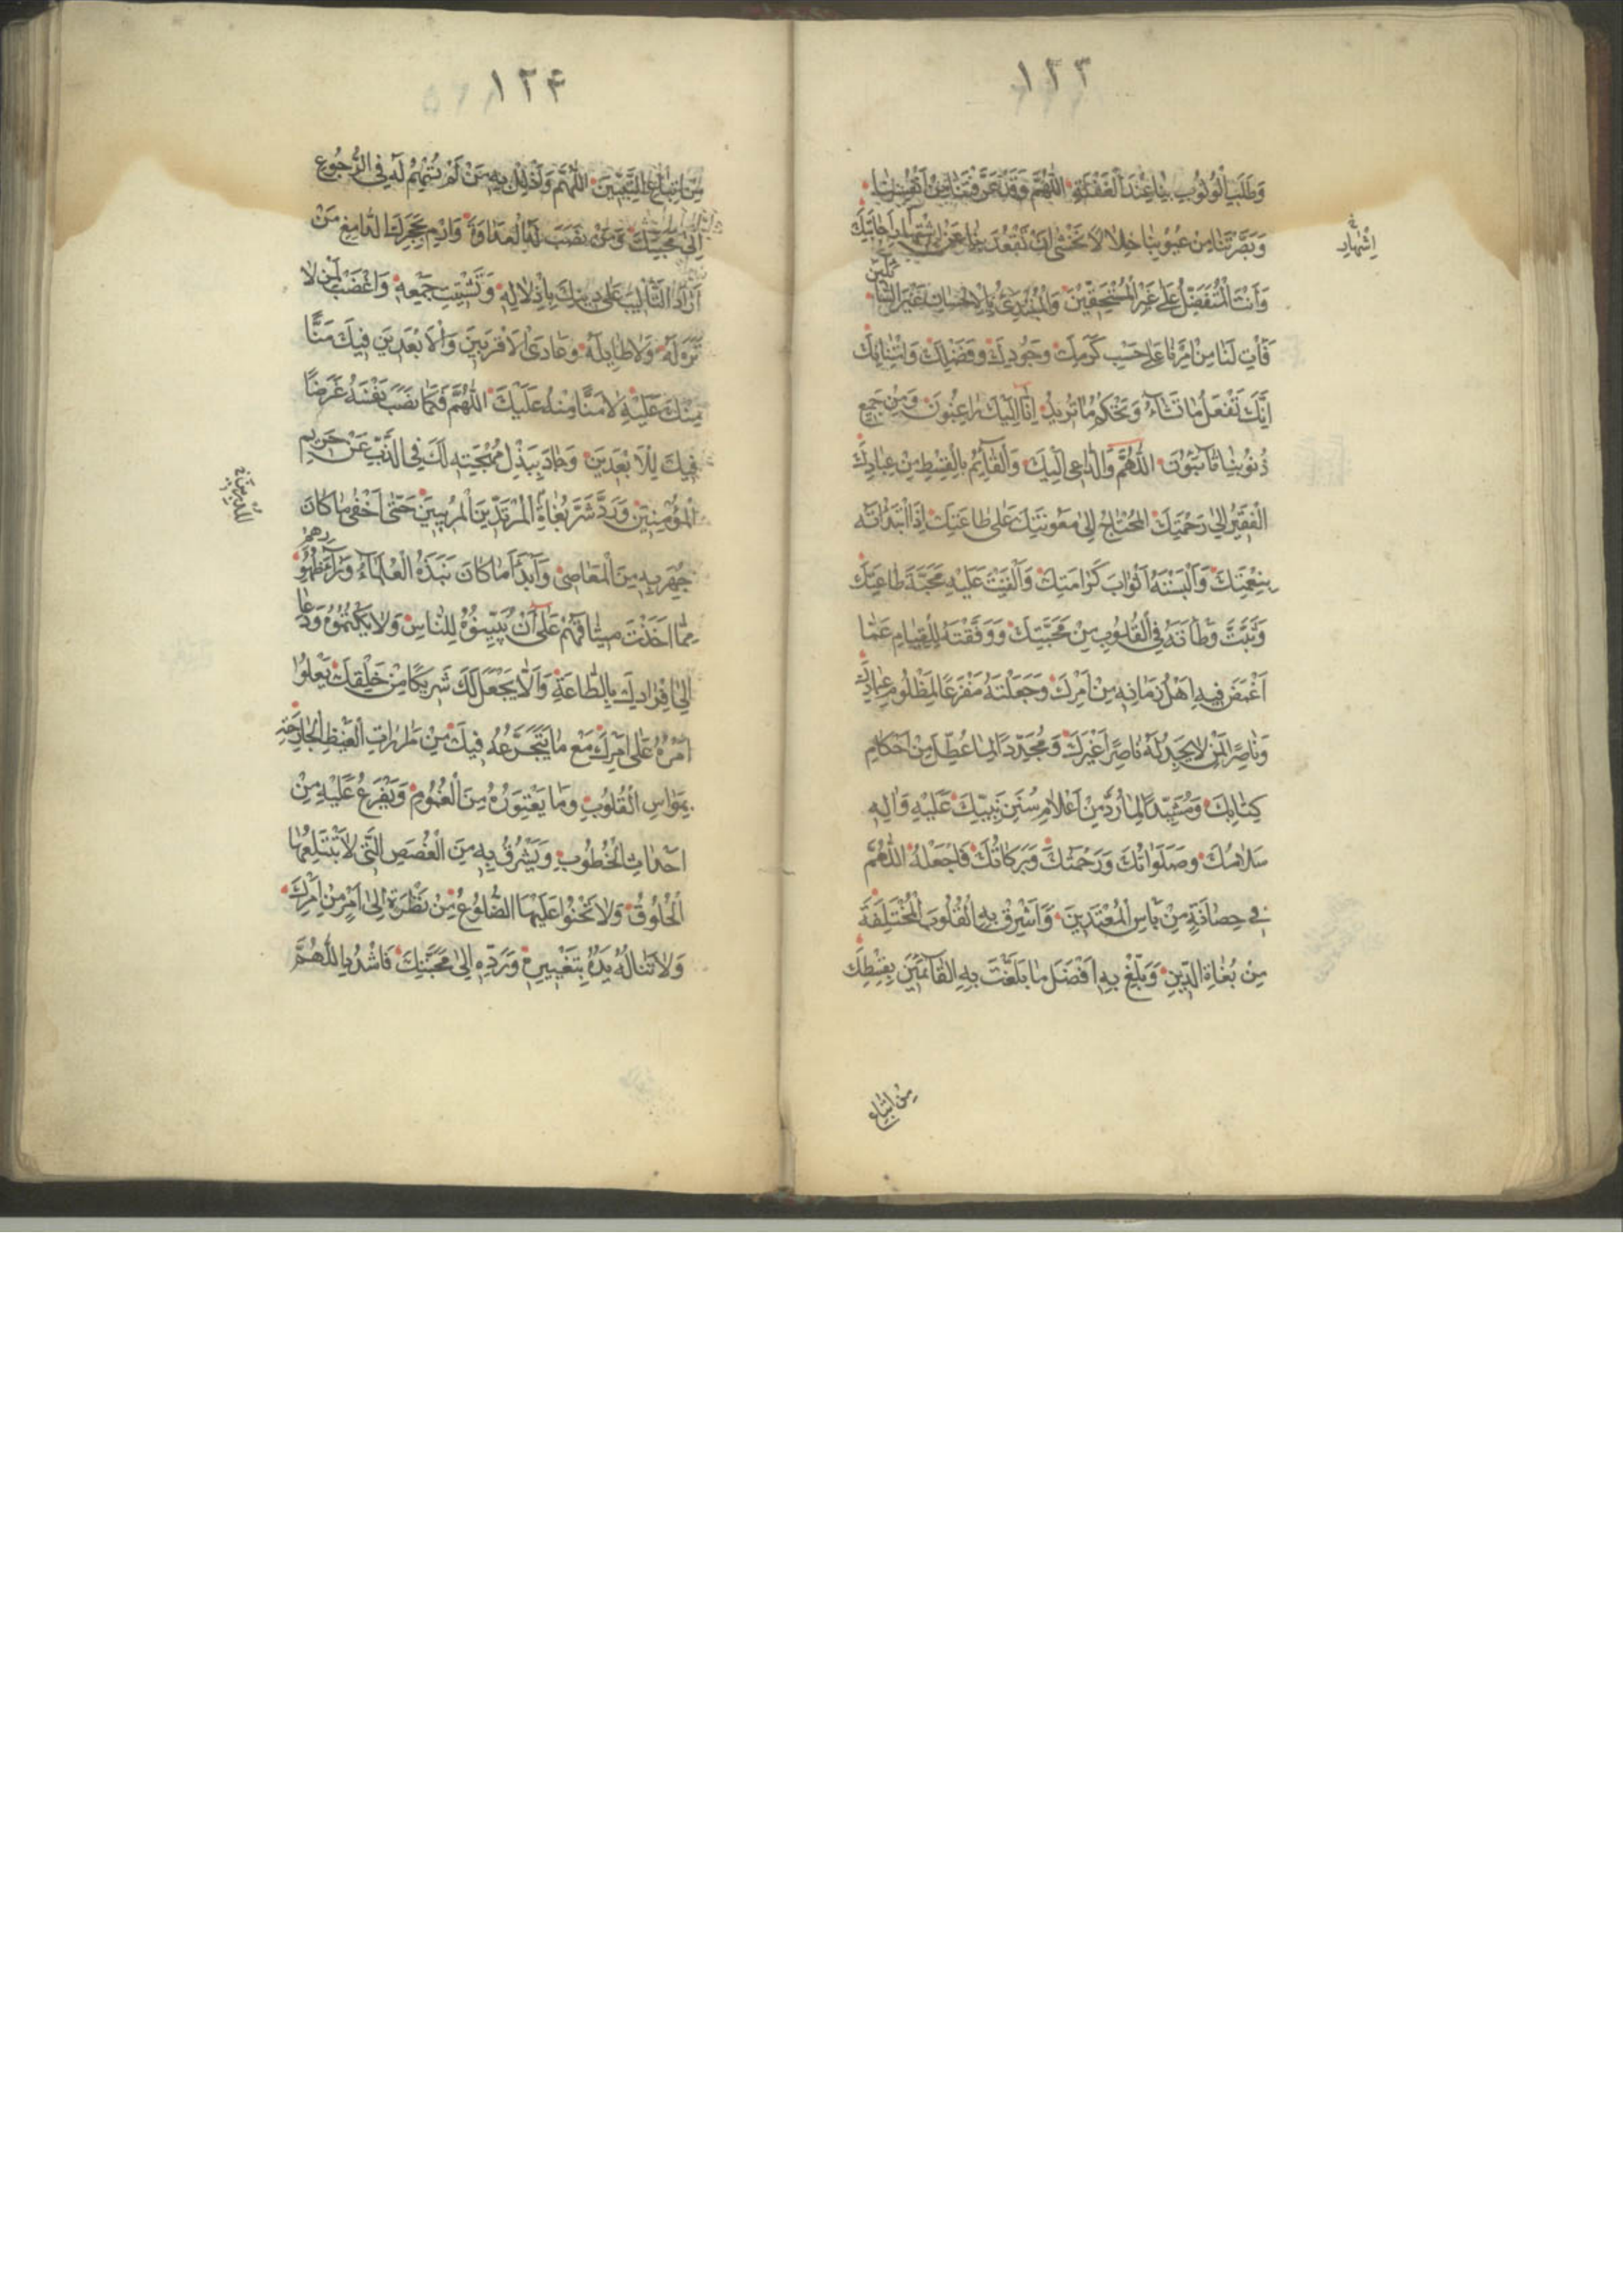 ١٢٣
وَطَلَبَ الْوُثُوبِ بِنَا عِنْدَ الْغَفْلَةِ اللّٰهُمَّ وَقَدْ عَرَّفْتَنَا مِنْ اَنْفُسِنَا
وَبَصَّرْتَنَا مِنْ عُيُوبِنَا خِلَالًا نَخْشٰى اَنْ تَقْعُدَ بِنَا عَنْ اشْتِهَارِ اِجَابَتِكَ
اِشْهَادِ خ
وَاَنْتَ الْمُتَفَضِّلُ عَلٰى غَيْرِ الْمُسْتَحِقِّينَ وَالْمُبْتَدِئُ بِالْاِحْسَانِ غَيْرَ السَّائِلِينَ
فَأْتِ لَنَا مِنْ اَمْرِنَا عَلٰى حَسَبِ كَرَمِكَ وَجُودِكَ وَفَضْلِكَ وَامْتِنَانِكَ
اِنَّكَ تَفْعَلُ مَا تَشَاءُ وَتَحْكُمُ مَا تُرِيدُ اِنَّا اِلَيْكَ رَاغِبُونَ وَمِنْ جَمِيعِ
ذُنُوبِنَا تَائِبُونَ اللّٰهُمَّ وَالدَّاعِي اِلَيْكَ وَالْقَائِمُ بِالْقِسْطِ مِنْ عِبَادِكَ
الْفَقِيرُ اِلٰى رَحْمَتِكَ الْمُحْتَاجُ اِلٰى مَعُونَتِكَ عَلٰى طَاعَتِكَ اِذَا ابْتَدَأْتَهُ
بِنِعْمَتِكَ وَاَلْبَسْتَهُ اَثْوَابَ كَرَامَتِكَ وَاَلْقَيْتَ عَلَيْهِ مَحَبَّةَ طَاعَتِكَ
وَثَبَّتَّ وَطْأَتَهُ فِي الْقُلُوبِ مِنْ مَحَبَّتِكَ وَوَفَّقْتَهُ لِلْقِيَامِ عَمَّا
اَغْمَضَ فِيهِ اَهْلُ زَمَانِهِ مِنْ اَمْرِكَ وَجَعَلْتَهُ مَفْزَعًا لِمَظْلُومِ عِبَادِكَ
وَنَاصِرًا لِمَنْ لَا يَجِدُ لَهُ نَاصِرًا غَيْرَكَ وَمُجَدِّدًا لِمَا عُطِّلَ مِنْ اَحْكَامِ
كِتَابِكَ وَمُشَيِّدًا لِمَا رُدَّ مِنْ اَعْلَامِ سُنَنِ نَبِيِّكَ عَلَيْهِ وَاٰلِهِ
سَلَامُكَ وَصَلَوَاتُكَ وَرَحْمَتُكَ وَبَرَكَاتُكَ فَاجْعَلْهُ اللّٰهُمَّ
فِي حِصَانَةٍ مِنْ بَأْسِ الْمُعْتَدِينَ وَاَشْرِقْ بِهِ الْقُلُوبَ الْمُخْتَلِفَةَ
مِنْ بُغَاةِ الدِّينِ وَبَلِّغْ بِهِ اَفْضَلَ مَا بَلَّغْتَ بِهِ الْقَائِمِينَ بِقِسْطِكَ
مِنْ اتْبَاعِ
١٢۴
مِنْ اتْبَاعِ النَّبِيِّينَ اللّٰهُمَّ وَاَذْلِلْ بِهِ مَنْ لَمْ تُسْهِمْ لَهُ فِي الرُّجُوعِ
اِلٰى مَحَبَّتِكَ وَمَنْ نَصَبَ لَهُ الْعَدَاوَةَ وَارْمِ بِحَجَرِكَ الدَّامِغِ مَنْ
اَرَادَ التَّأْلِيبَ عَلٰى دِينِكَ بِاِذْلَالِهِ وَتَشْتِيتِ جَمْعِهِ وَاغْضَبْ لِمَنْ لَا
تِرَةَ لَهُ وَلَا طَائِلَةَ وَعَادَى الْاَقْرَبِينَ وَالْاَبْعَدِينَ فِيكَ مَنًّا
مِنْكَ عَلَيْهِ لَا مَنًّا مِنْهُ عَلَيْكَ اللّٰهُمَّ فَكَمَا نَصَبَ نَفْسَهُ غَرَضًا
فِيكَ لِلْاَبْعَدِينَ وَجَادَ بِبَذْلِ مُهْجَتِهِ لَكَ فِي الذَّبِّ عَنْ حَرِيمِ
الْمُؤْمِنِينَ وَرَدَّ شَرَّ بُغَاةِ الْمُرْتَدِّينَ الْمُرِيبِينَ حَتّٰى اَخْفٰى مَا كَانَ
جُهِرَ بِهِ مِنَ الْمَعَاصِي وَاَبْدَا مَا كَانَ نَبَذَهُ الْعُلَمَاءُ وَرَاءَ ظُهُورِهِمْ
مِمَّا اَخَذْتَ مِيثَاقَهُمْ عَلٰى اَنْ يُبَيِّنُوهُ لِلنَّاسِ وَلَا يَكْتُمُوهُ وَدَعَا
اِلٰى اِفْرَادِكَ بِالطَّاعَةِ وَاَلَّا يَجْعَلَ لَكَ شَرِيكًا مِنْ خَلْقِكَ يَعْلُوا
اَمْرُهُ عَلٰى اَمْرِكَ مَعَ مَا يَتَجَرَّعُهُ فِيكَ مِنْ مَرَارَاتِ الْغَيْظِ الْجَارِحَةِ
بِمَوَاسِ الْقُلُوبِ وَمَا يَعْتَوِرُهُ مِنَ الْغُمُومِ وَيَفْرَعُ عَلَيْهِ مِنْ
اَحْدَاثِ الْخُطُوبِ وَيَشْرَقُ بِهِ مِنَ الْغُصَصِ الَّتِي لَا تَبْتَلِعُهَا
الْحُلُوقُ وَلَا تَحْنُوا عَلَيْهَا الضُّلُوعُ مِنْ نَظْرَةٍ اِلٰى اَمْرٍ مِنْ اَمْرِكَ
وَلَا تَنَالُهُ يَدُهُ بِتَغْيِيرِهِ وَرَدِّهِ اِلٰى مَحَبَّتِكَ فَاشْدُدِ اللّٰهُمَّ